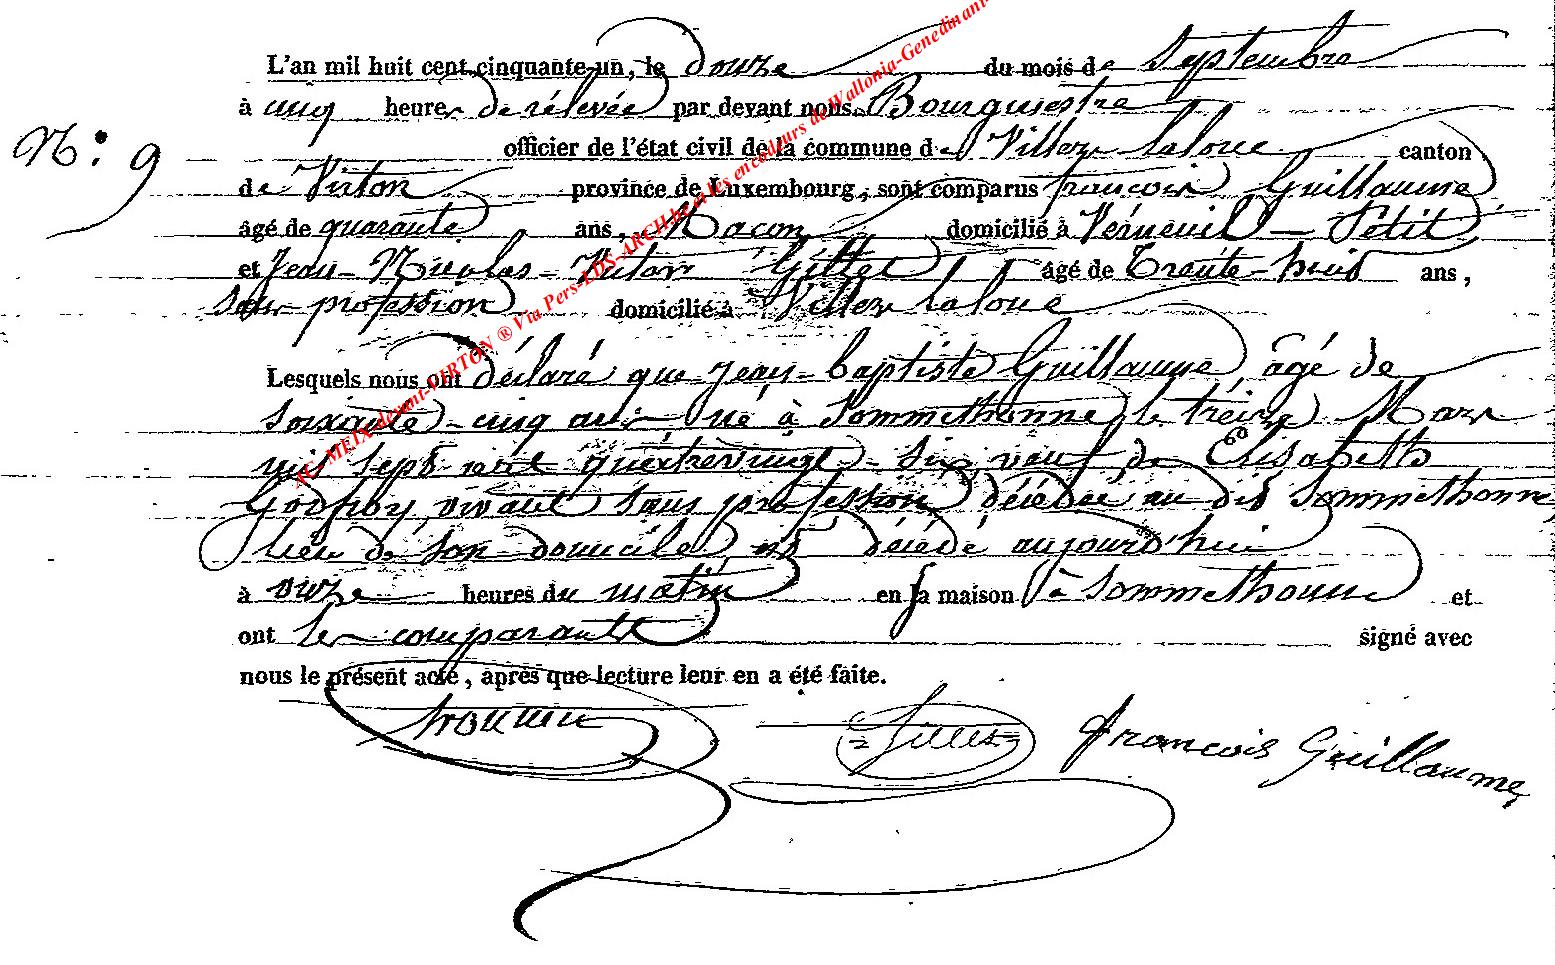 L'an mil huit cent cinquante-un, le douze du mois de Septembre
à cinq heures de rélevée par devant nous Bourguestre
N.: 9
officier de l'état civil de la commune de Villers laloue canton
de Virton province de Luxembourg, sont comparus françois Guillaume
âgé de quarante ans, Macon domicilié à Vérneuil – Petit
et Jean – Nicolas – Gillet âgé de Trente – huit ans,
sans profession domicilié à Villers laloue
Lesquels nous ont déclaré que Jean – baptiste Guillaume âgé de
soixante – cinq ans né à Sommethonne le treize Mars
mil sept cent quatrevingt – six veuf de Elisabeth
Godfroy vivant sans profession décédée au dit Sommethonne
lieu de son domicile, est décédé aujourd'hui
à onze heures du matin en sa maison à Sommethonne et
ont les comparants signé avec
nous le présent acte, après que lecture leur en a été faite.
Gillet françois Guillaume
AC MEIX-devant-VIRTON ® Via Pers-LDS-ARCH.be et les encodeurs de Wallonia-Genedinant